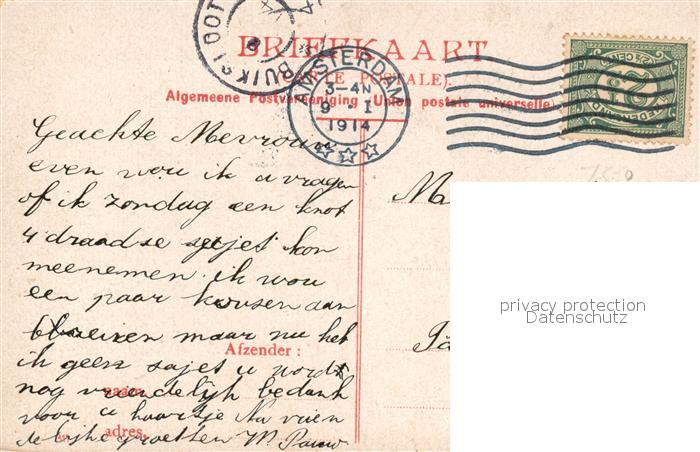 BUIKSLOOT
BRIEFKAART
(CARTE POSTALE).
Algemeene Postvereeniging (Union postale universelle)
AMSTERDAM
3-4N
9 · I
1914
Geachte Mevrouw
even wou ik u vragen
of ik zondag een knot
4 draadse sajet kon
meenemen. ik wou
een paar kousen aan
breiren maar nu heb
ik geen sajet u word
nog vriendelijk bedank
voor u kaartje Na vrien
delijke groetten W. Pauw
Afzender:
naam,
adres,
privacy protection
Datenschutz